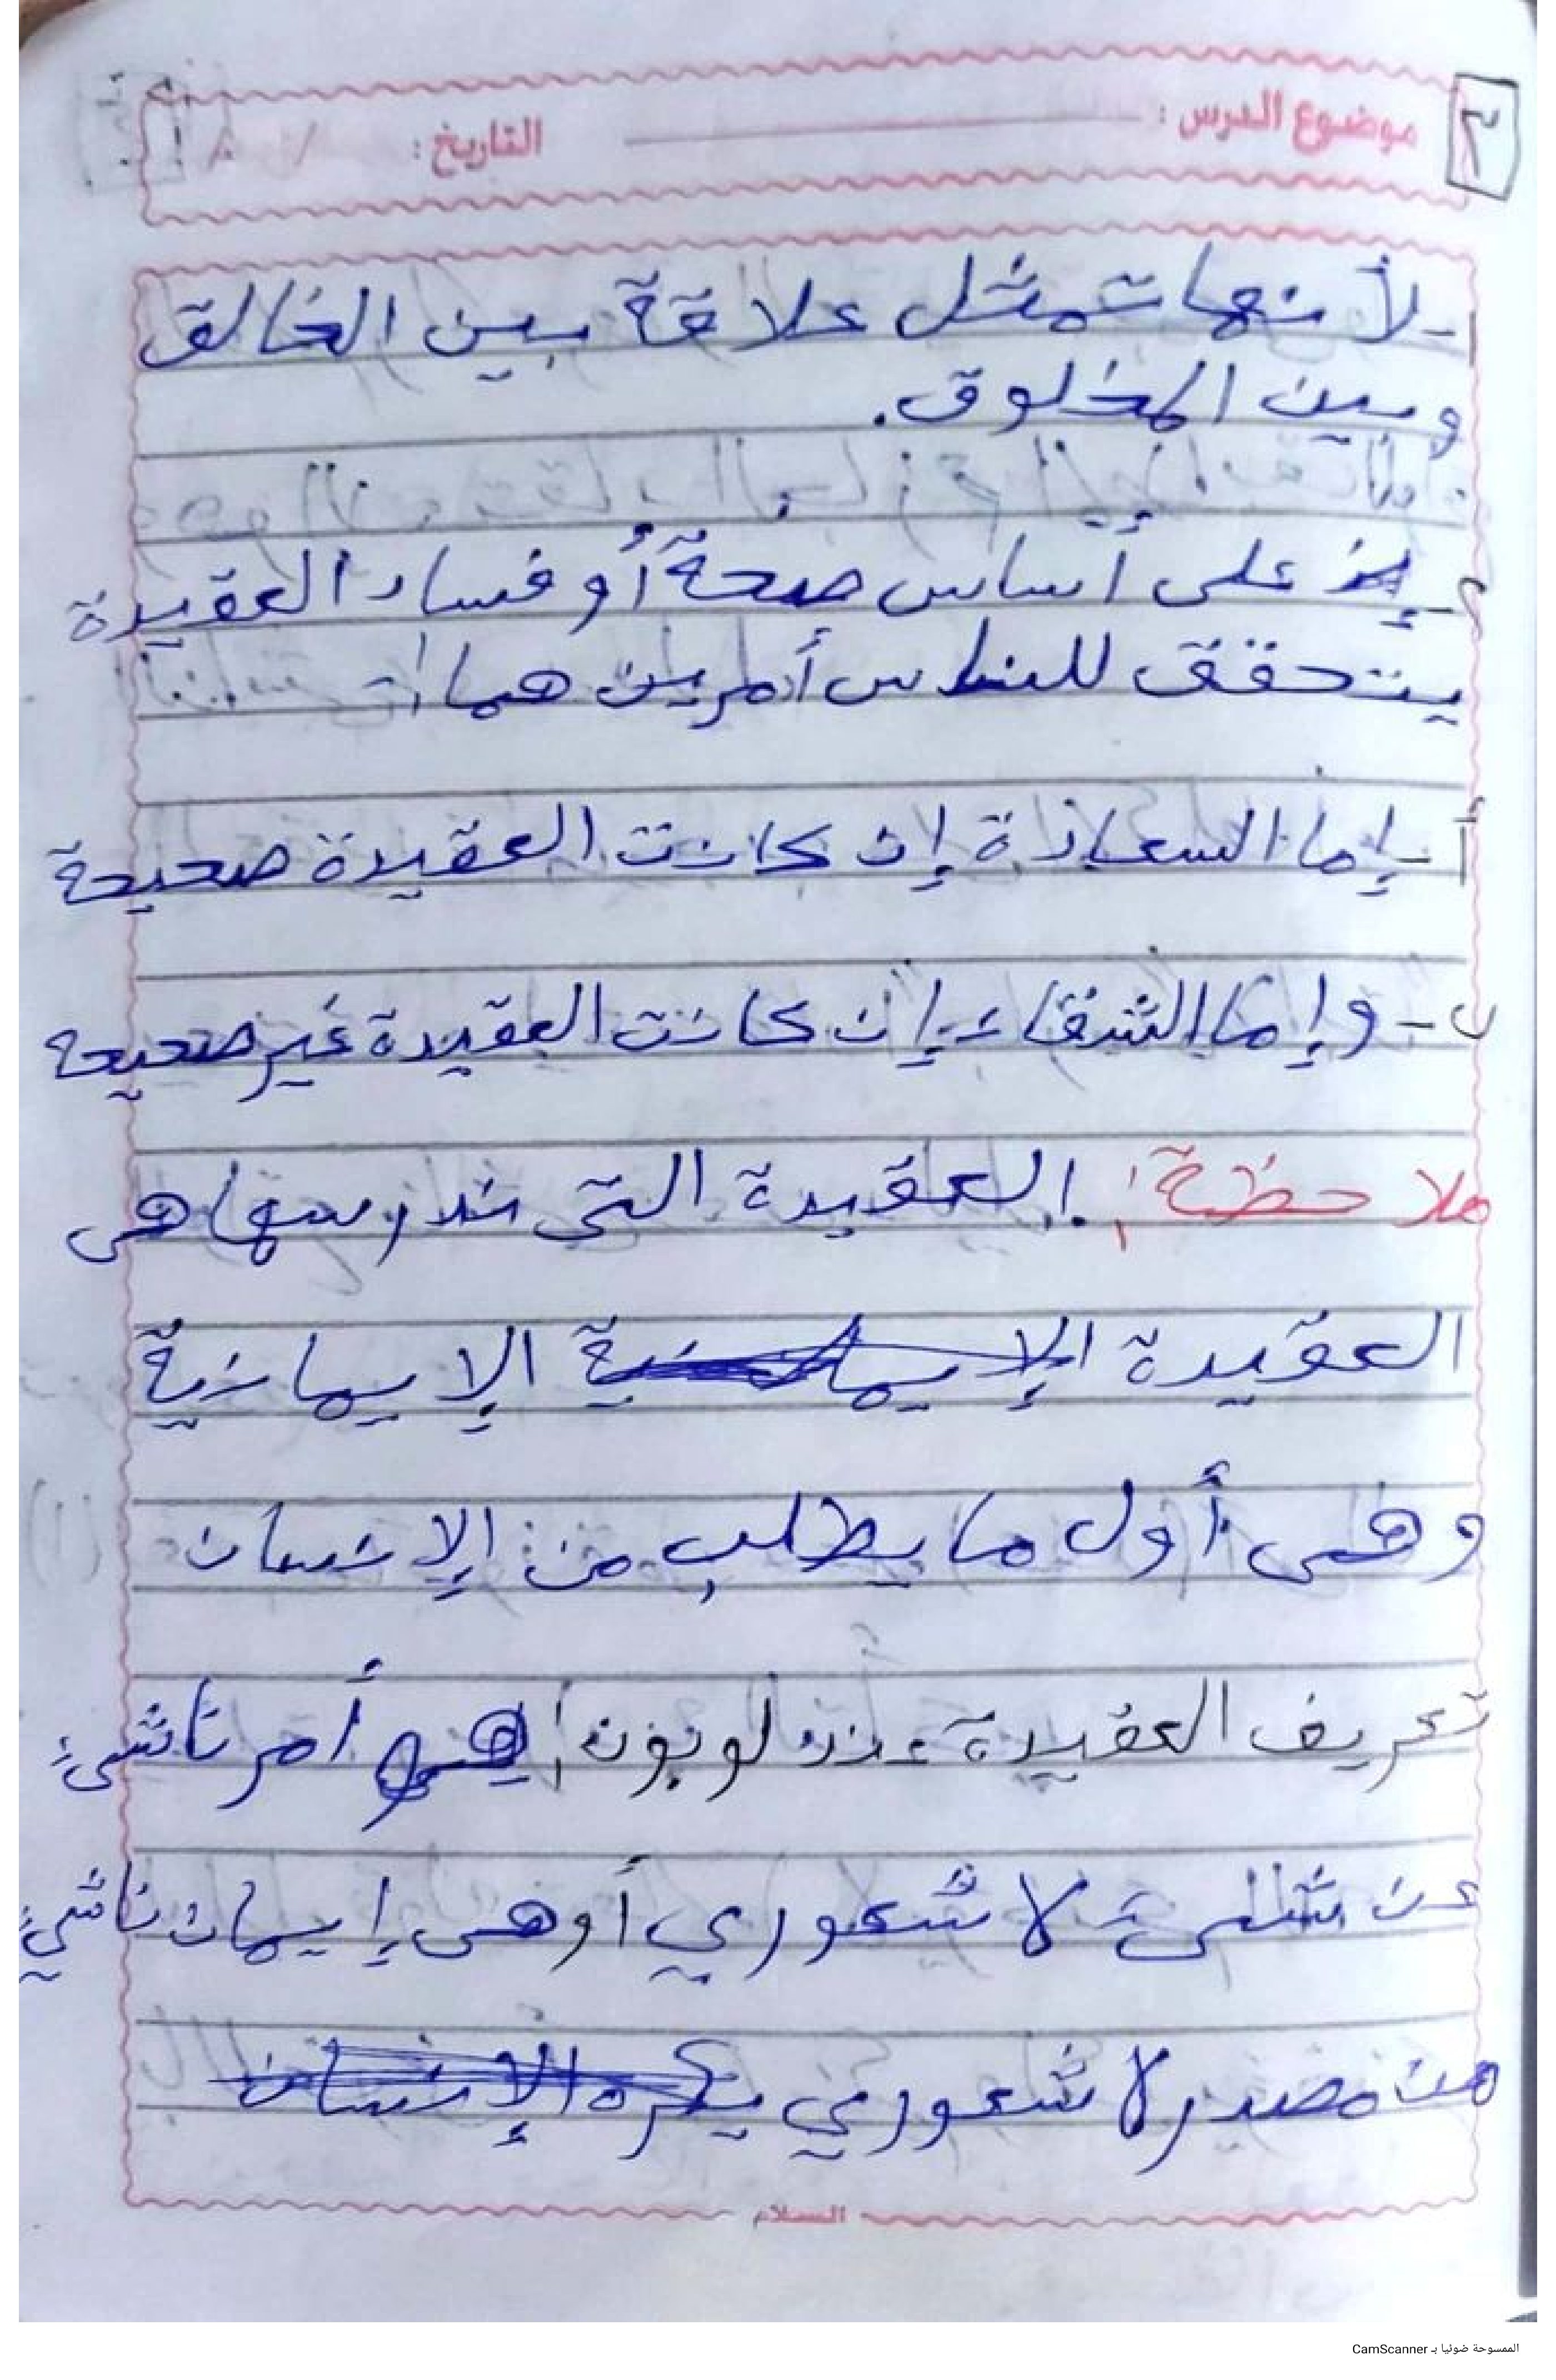 ٢
موضوع الدرس : التاريخ : /
١- لأنها تمثل علاقة بين الخالق
وبين المخلوق.
٢- على أساس صحة أو فساد العقيدة
يتحقق للناس أمرين هما :-
أ- إما السعادة إن كانت العقيدة صحيحة
ب- وإما الشقاء إن كانت العقيدة غير صحيحة
ملاحظة : العقيدة التي ندرسها هي
العقيدة الإيمانية
وهي أول ما يطلب من الإنسان
تعريف العقيدة عند لوبون : هي أمر ناشئ
عن شيء لا شعوري أو هي إيمان ناشئ
من مصدر لا شعوري
السلام
الممسوحة ضوئيا بـ CamScanner